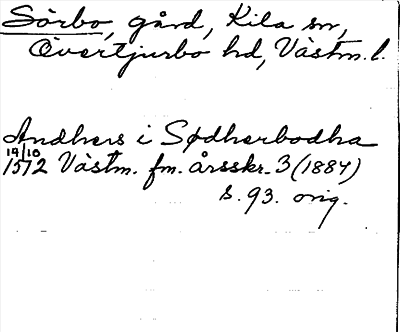 Sörbo, gård, Kila sn,
Övertjurbo hd, Västm. l.
Andhers i Sødherbodha
19/10
1572 Västm. fm. årsskr. 3 (1884)
s. 93. orig.